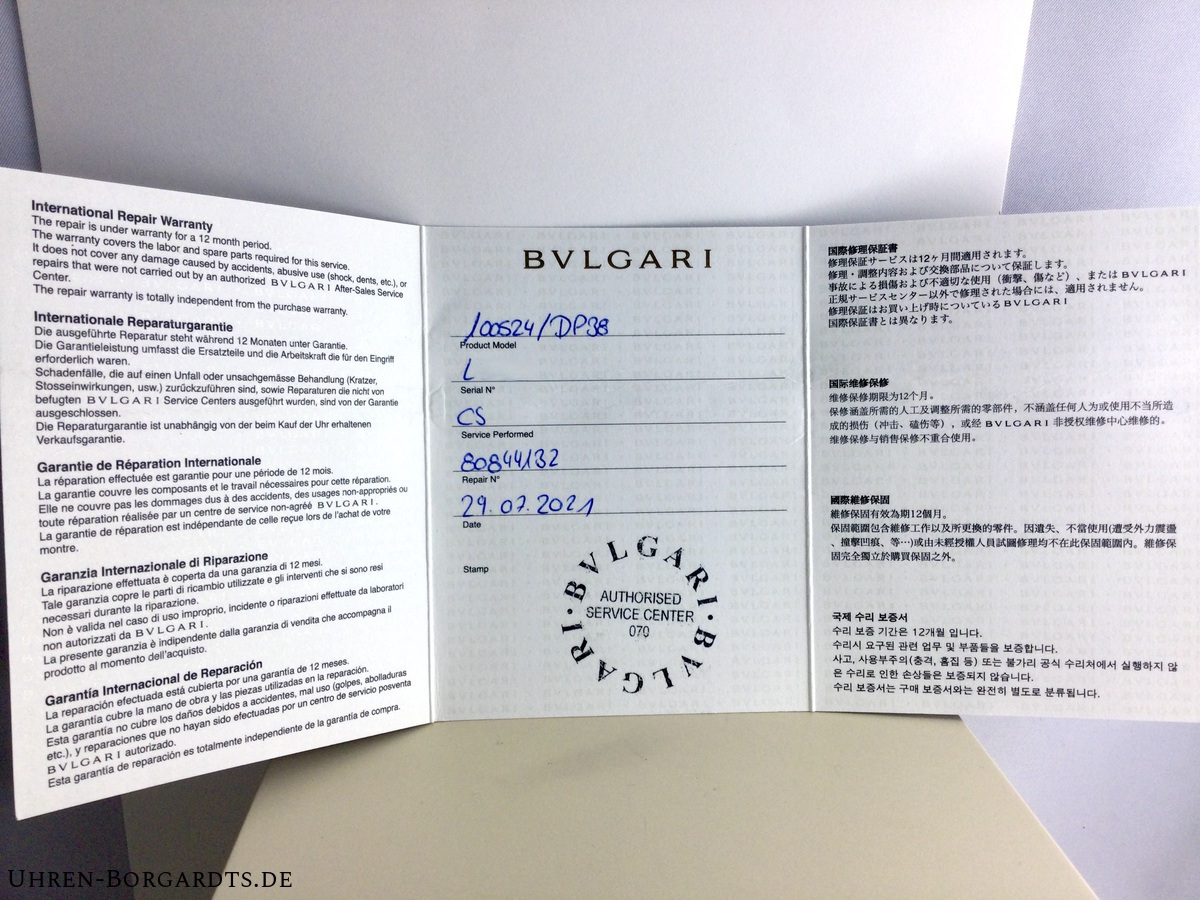 International Repair Warranty
The repair is under warranty for a 12 month period.
The warranty covers the labor and spare parts required for this service.
It does not cover any damage caused by accidents, abusive use (shock, dents, etc.), or
repairs that were not carried out by an authorized BVLGARI After-Sales Service
Center.
The repair warranty is totally independent from the purchase warranty.
Internationale Reparaturgarantie
Die ausgeführte Reparatur steht während 12 Monaten unter Garantie.
Die Garantieleistung umfasst die Ersatzteile und die Arbeitskraft die für den Eingriff
erforderlich waren.
Schadenfälle, die auf einen Unfall oder unsachgemässe Behandlung (Kratzer,
Stosseinwirkungen, usw.) zurückzuführen sind, sowie Reparaturen die nicht von
befugten BVLGARI Service Centers ausgeführt wurden, sind von der Garantie
ausgeschlossen.
Die Reparaturgarantie ist unabhängig von der beim Kauf der Uhr erhaltenen
Verkaufsgarantie.
Garantie de Réparation Internationale
La réparation effectuée est garantie pour une période de 12 mois.
La garantie couvre les composants et le travail nécessaires pour cette réparation.
Elle ne couvre pas les dommages dus à des accidents, des usages non-appropriés ou
toute réparation réalisée par un centre de service non-agréé BVLGARI.
La garantie de réparation est indépendante de celle reçue lors de l'achat de votre
montre.
Garanzia Internazionale di Riparazione
La riparazione effettuata è coperta da una garanzia di 12 mesi.
Tale garanzia copre le parti di ricambio utilizzate e gli interventi che si sono resi
necessari durante la riparazione.
Non è valida nel caso di uso improprio, incidente o riparazioni effettuate da laboratori
non autorizzati da BVLGARI.
La presente garanzia è indipendente dalla garanzia di vendita che accompagna il
prodotto al momento dell'acquisto.
Garantía Internacional de Reparación
La reparación efectuada está cubierta por una garantía de 12 meses.
La garantía cubre la mano de obra y las piezas utilizadas en la reparación.
Esta garantía no cubre los daños debidos a accidentes, mal uso (golpes, abolladuras
etc.), y reparaciones que no hayan sido efectuadas por un centro de servicio posventa
BVLGARI autorizado.
Esta garantía de reparación es totalmente independiente de la garantía de compra.
BVLGARI
100524/DP38
Product Model
L
Serial N°
CS
Service Performed
80844132
Repair N°
29.07.2021
Date
Stamp
BVLGARI · BVLGARI ·
AUTHORISED
SERVICE CENTER
070
国際修理保証書
修理保証サービスは12ヶ月間適用されます。
修理・調整内容および交換部品について保証します。
事故による損傷および不適切な使用（衝撃、傷など）、または BVLGARI
正規サービスセンター以外で修理された場合には、適用されません。
修理保証はお買い上げ時についている BVLGARI
国際保証書とは異なります。
国际维修保修
维修保修期限为12个月。
保修涵盖所需的人工及调整所需的零部件，不涵盖任何人为或使用不当所造
成的损伤（冲击、磕伤等），或经 BVLGARI 非授权维修中心维修的。
维修保修与销售保修不重合使用。
國際維修保固
維修保固有效為期12個月。
保固範圍包含維修工作以及所更換的零件。因遺失、不當使用(遭受外力震盪
、撞擊凹痕、等…)或由未經授權人員試圖修理均不在此保固範圍內。維修保
固完全獨立於購買保固之外。
국제 수리 보증서
수리 보증 기간은 12개월 입니다.
수리시 요구된 관련 업무 및 부품들을 보증합니다.
사고, 사용부주의(충격, 흠집 등) 또는 불가리 공식 수리처에서 실행하지 않
은 수리로 인한 손상들은 보증되지 않습니다.
수리 보증서는 구매 보증서와는 완전히 별도로 분류됩니다.
UHREN-BORGARDTS.DE